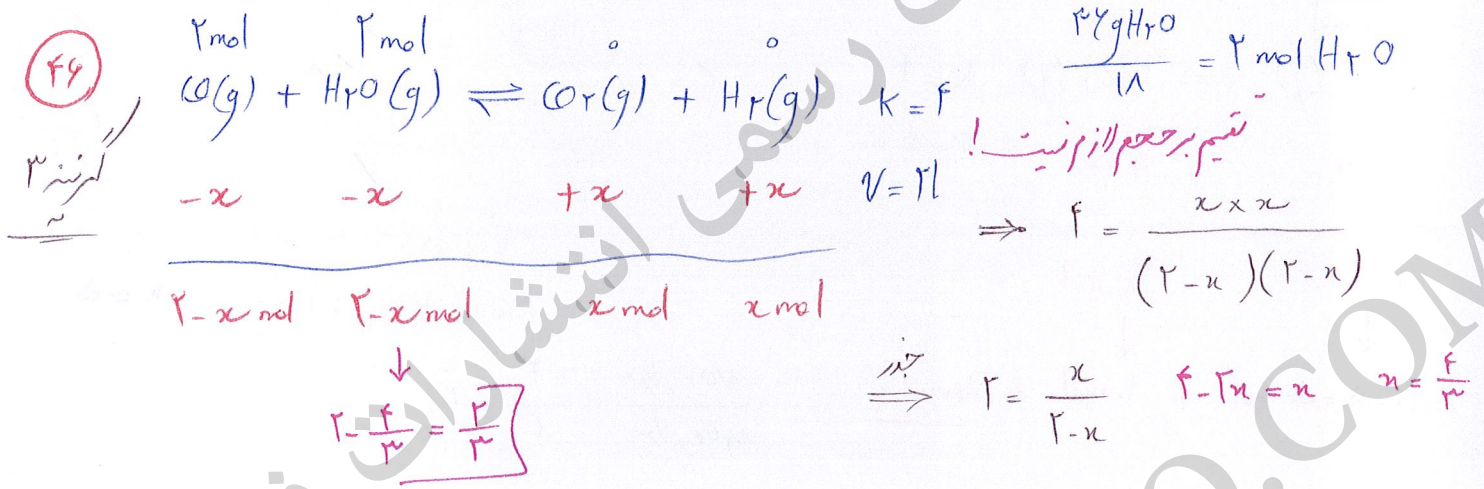 ۴۶
گزینه ۳
۲mol ۲mol ۰ ۰
CO(g) + H۲O(g) ⇌ CO۲(g) + H۲(g) k = ۴
-x -x +x +x V = ۲l
۲-x mol ۲-x mol x mol x mol
↓
۲ - ۴/۳ = ۲/۳
۳۶gH۲O / ۱۸ = ۲ mol H۲O
تقسیم بر حجم لازم نیست!
⇒ ۴ = x × x / (۲-x)(۲-x)
جذر ⇒ ۲ = x / ۲-x ۴-۲x = x x = ۴/۳
رسمی انتشارات
O.COM